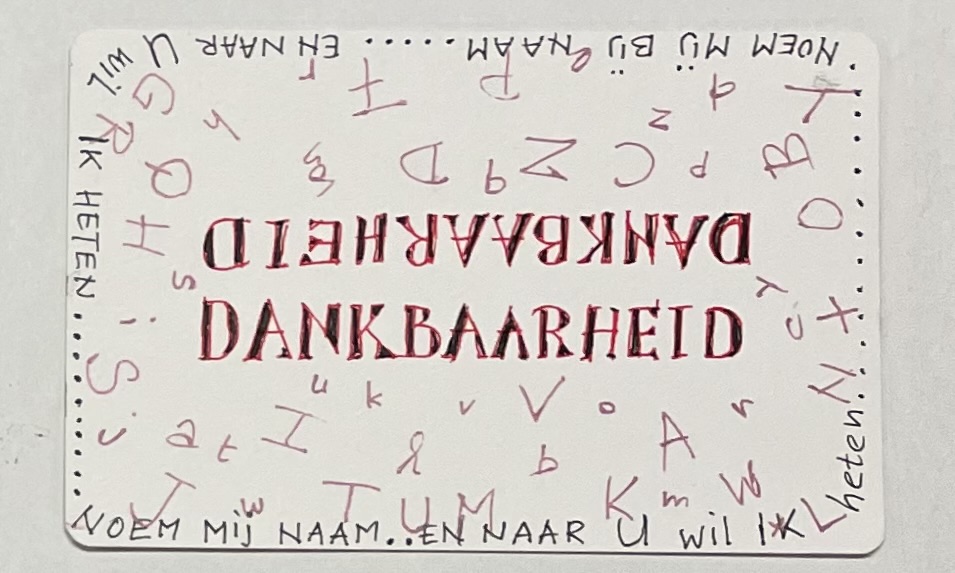 NOEM MIJ BIJ NAAM...... EN NAAR U WIL
IK HETEN...........
DANKBAARHEID
DANKBAARHEID
NOEM Mij NAAM..EN NAAR U wil IK
heten...........
G r I P q T
R h z
Q m D q N C P B
H O
s y
i c t
S N
u k v V o A r
j a t H l b
T w T U M K m W L